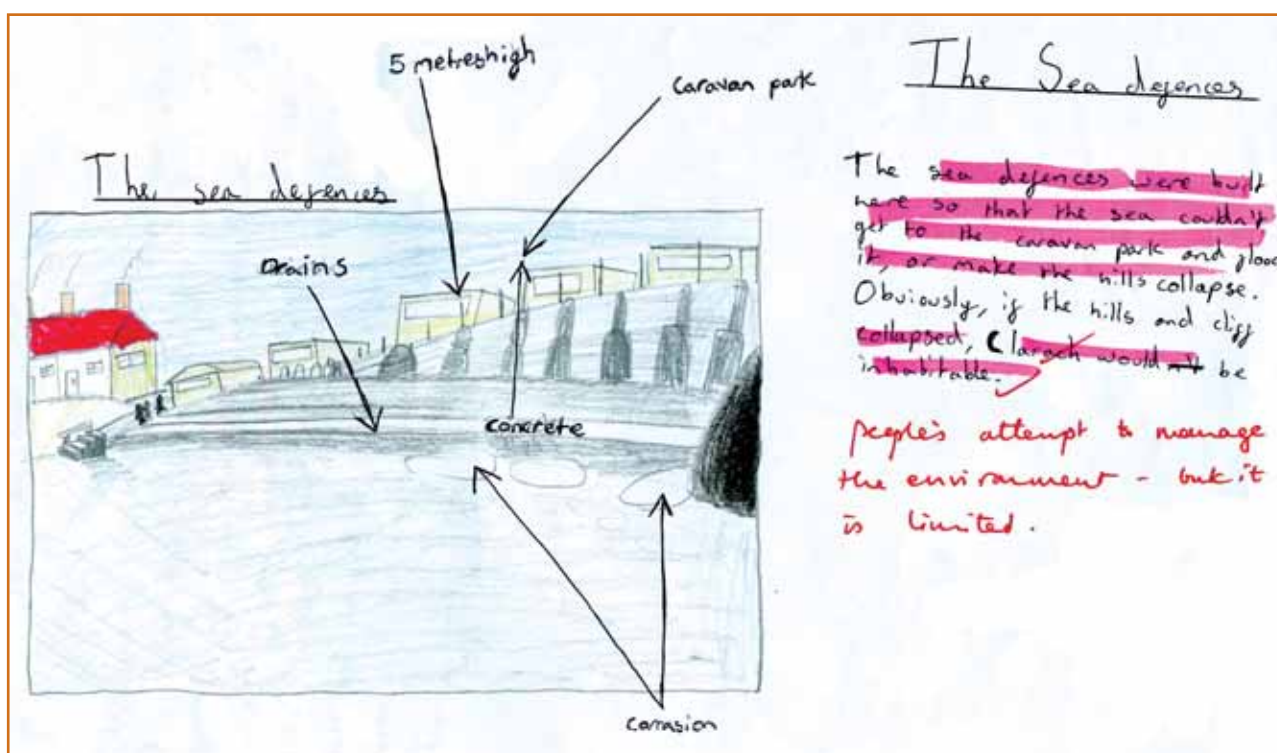 5 metreshigh
caravan park
The sea defences
Drains
concrete
Corrasion
The Sea defences
The sea defences were built
here so that the sea couldn't
get to the caravan park and flood
it, or make the hills collapse.
Obviously, if the hills and cliff
collapsed, Clarach wouldn't be
inhabitable.
people's attempt to manage
the environment - but it
is limited.